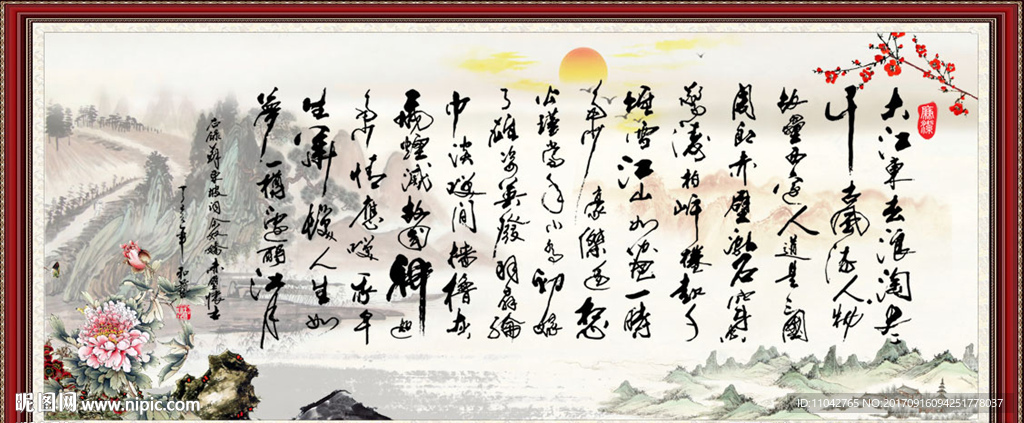 大江東去浪淘盡
千古風流人物
故壘西邊人道是三國
周郎赤壁亂石穿空
驚濤拍岸捲起千
堆雪江山如畫一時
多少豪傑遙想
公瑾當年小喬初嫁
了雄姿英發羽扇綸
巾談笑間檣櫓灰
飛煙滅故國神遊
多情應笑我早
生華髮人生如
夢一樽還酹江月
右錄蘇東坡詞念奴嬌赤壁懷古
昵图网 www.nipic.com
ID:11042765 NO:20170916094251778037